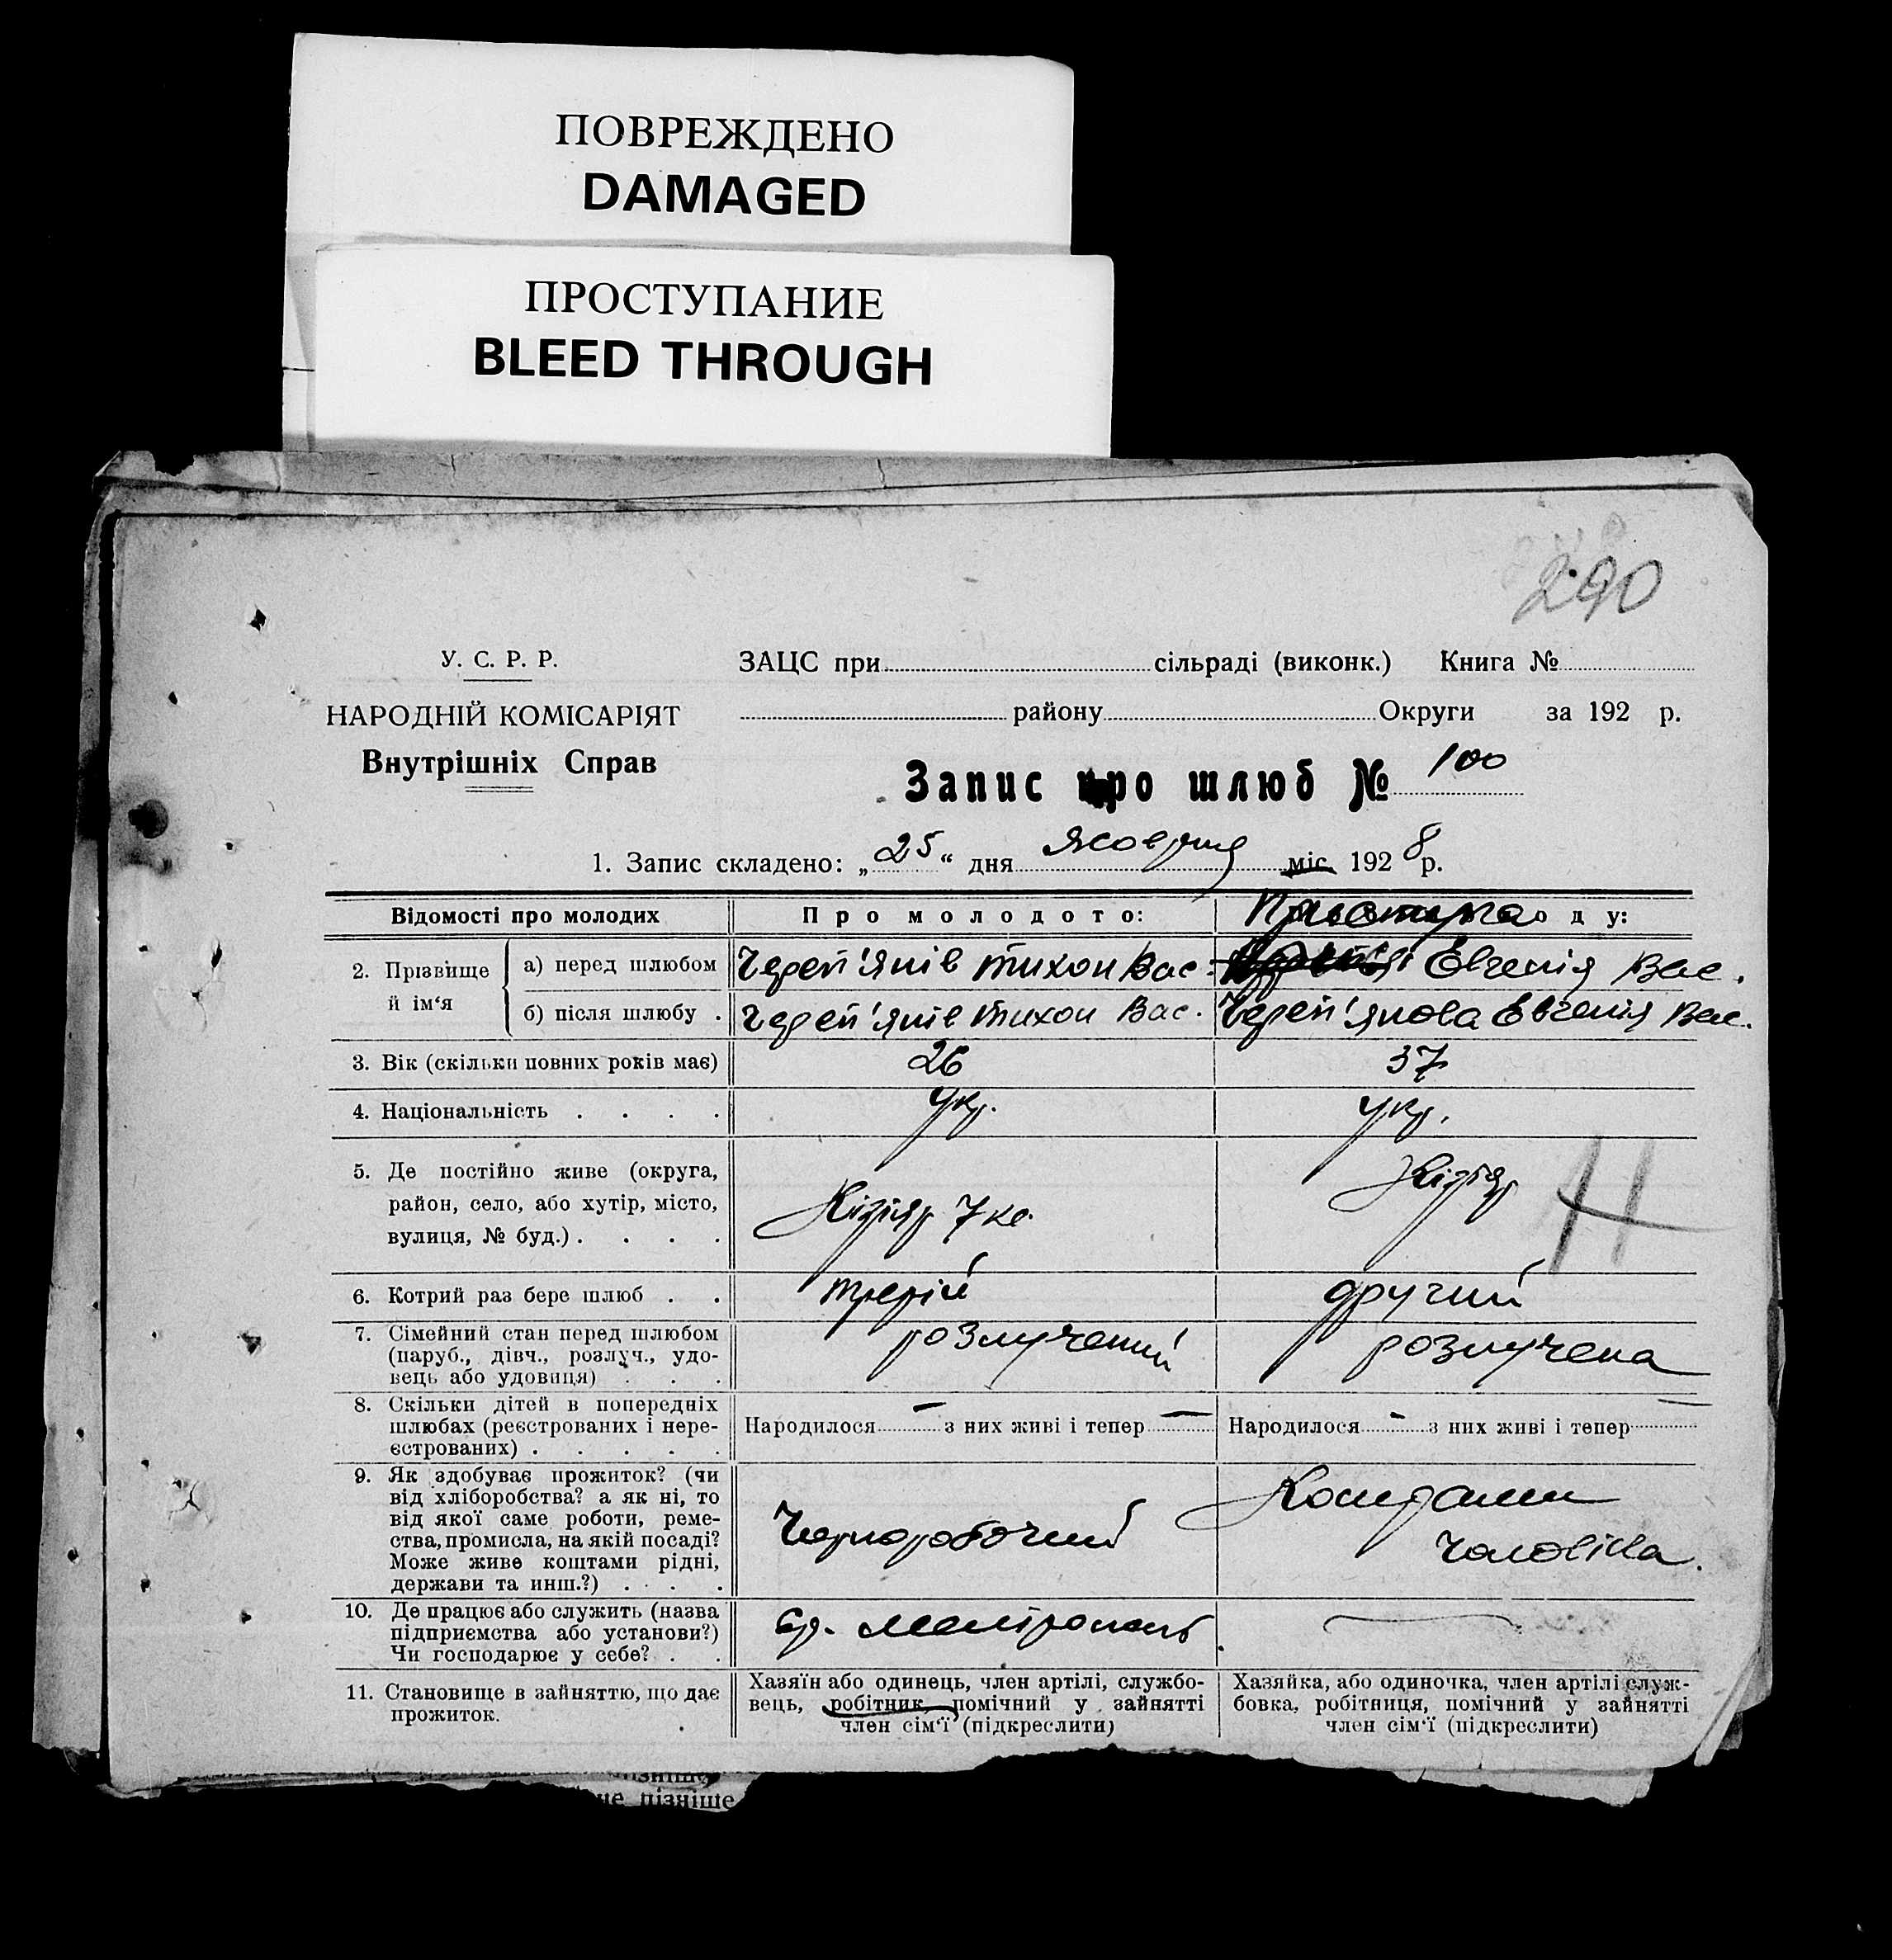 ПОВРЕЖДЕНО
DAMAGED
ПРОСТУПАНИЕ
BLEED THROUGH
290
У. С. Р. Р.
ЗАЦС при сільраді (виконк.) Книга №
НАРОДНІЙ КОМІСАРІЯТ
району Округи за 192 р.
Внутрішніх Справ
Запис про шлюб № 100
1. Запис складено: „25“ дня жовтня міс. 1928 р.
Відомості про молодих
Про молодого:
оду:
2. Прізвище й ім‘я
а) перед шлюбом
Череп'янів Тихон Вас.
Евгенія Вас.
б) після шлюбу .
Череп'янів Тихон Вас.
Череп'янова Евгенія Вас.
3. Вік (скільки повних років має)
26
37
4. Національність . . . .
укр.
укр.
5. Де постійно живе (округа,
район, село, або хутір, місто,
вулиця, № буд.) . . . .
Кізіяр 7
Кізіяр
6. Котрий раз бере шлюб . .
третій
другий
7. Сімейний стан перед шлюбом
(паруб., дівч., розлуч., удо-
вець або удовиця) . . .
розлучений
розлучена
8. Скільки дітей в попередніх
шлюбах (реєстрованих і нере-
єстрованих) . . . . .
Народилося – з них живі і тепер –
Народилося – з них живі і тепер –
9. Як здобуває прожиток? (чи
від хліборобства? а як ні, то
від якої саме роботи, реме-
ства, промисла, на якій посаді?
Може живе коштами рідні,
держави та инш.?) . . .
Чорноробочий
Коштами
чоловіка.
10. Де працює або служить (назва
підприємства або установи?)
Чи господарює у себе? . .
Мелітополь
11. Становище в зайняттю, що дає
прожиток.
Хазяїн або одинець, член артілі, службо-
вець, робітник, помічний у зайнятті
член сім‘ї (підкреслити)
Хазяйка, або одиночка, член артілі служ-
бовка, робітниця, помічний у зайнятті
член сім‘ї (підкреслити)
пізніше